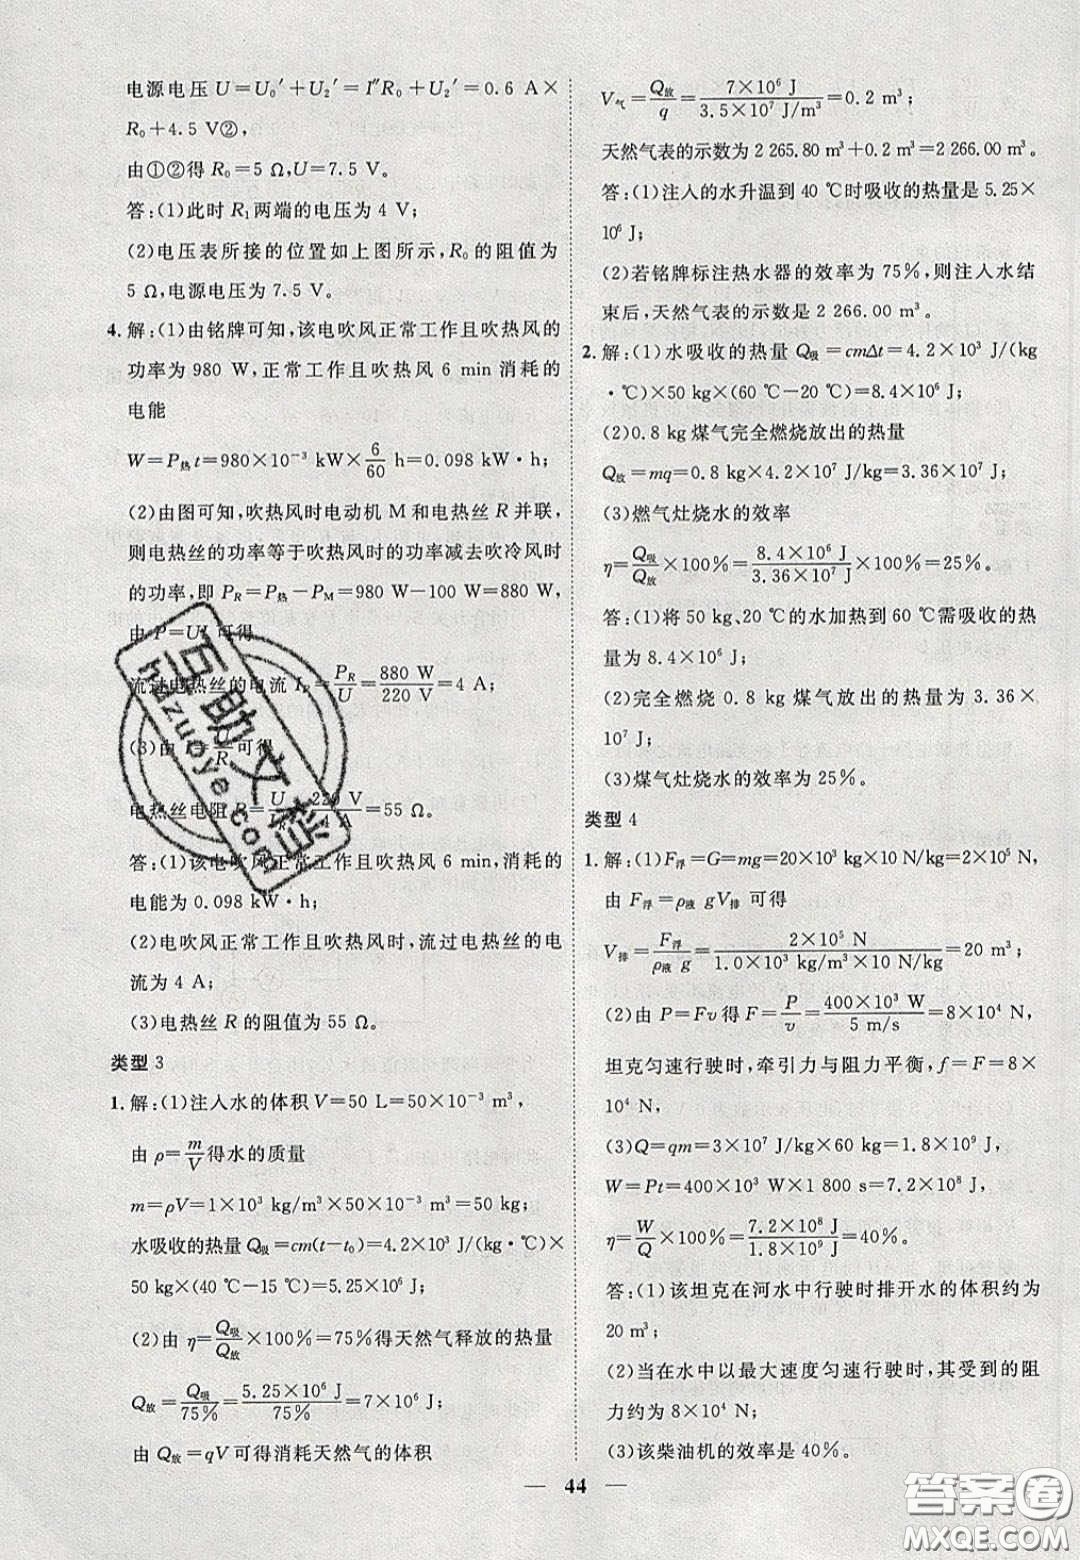 电源电压 U=U₀′+U₂′=I″R₀+U₂′=0.6 A×
R₀+4.5 V②,
由①②得 R₀=5 Ω,U=7.5 V。
答:(1)此时 R₁ 两端的电压为 4 V;
(2)电压表所接的位置如上图所示,R₀ 的阻值为
5 Ω,电源电压为 7.5 V。
4. 解:(1)由铭牌可知,该电吹风正常工作且吹热风的
功率为 980 W,正常工作且吹热风 6 min 消耗的
电能
W=P热t=980×10⁻³ kW×6/60 h=0.098 kW·h;
(2)由图可知,吹热风时电动机 M 和电热丝 R 并联,
则电热丝的功率等于吹热风时的功率减去吹冷风时
的功率,即 P_R=P热-P_M=980 W-100 W=880 W,
由 P=UI 可得
流过电热丝的电流 I_R=P_R/U=880 W/220 V=4 A;
(3)由 I=U/R 可得
电热丝电阻 R=U/I_R=220 V/4 A=55 Ω。
答:(1)该电吹风正常工作且吹热风 6 min,消耗的
电能为 0.098 kW·h;
(2)电吹风正常工作且吹热风时,流过电热丝的电
流为 4 A;
(3)电热丝 R 的阻值为 55 Ω。
类型 3
1. 解:(1)注入水的体积 V=50 L=50×10⁻³ m³,
由 ρ=m/V 得水的质量
m=ρV=1×10³ kg/m³×50×10⁻³ m³=50 kg;
水吸收的热量 Q吸=cm(t-t₀)=4.2×10³ J/(kg·℃)×
50 kg×(40 ℃-15 ℃)=5.25×10⁶ J;
(2)由 η=Q吸/Q放×100%=75%得天然气释放的热量
Q放=Q吸/75%=5.25×10⁶ J/75%=7×10⁶ J
由 Q放=qV 可得消耗天然气的体积
V气=Q放/q=7×10⁶ J/3.5×10⁷ J/m³=0.2 m³;
天然气表的示数为 2 265.80 m³+0.2 m³=2 266.00 m³。
答:(1)注入的水升温到 40 ℃时吸收的热量是 5.25×
10⁶ J;
(2)若铭牌标注热水器的效率为 75%,则注入水结
束后,天然气表的示数是 2 266.00 m³。
2. 解:(1)水吸收的热量 Q吸=cmΔt=4.2×10³ J/(kg
·℃)×50 kg×(60 ℃-20 ℃)=8.4×10⁶ J;
(2)0.8 kg 煤气完全燃烧放出的热量
Q放=mq=0.8 kg×4.2×10⁷ J/kg=3.36×10⁷ J;
(3)燃气灶烧水的效率
η=Q吸/Q放×100%=8.4×10⁶ J/3.36×10⁷ J×100%=25%。
答:(1)将 50 kg、20 ℃的水加热到 60 ℃需吸收的热
量为 8.4×10⁶ J;
(2)完全燃烧 0.8 kg 煤气放出的热量为 3.36×
10⁷ J;
(3)煤气灶烧水的效率为 25%。
类型 4
1. 解:(1)F浮=G=mg=20×10³ kg×10 N/kg=2×10⁵ N,
由 F浮=ρ液 gV排 可得
V排=F浮/ρ液 g=2×10⁵ N/1.0×10³ kg/m³×10 N/kg=20 m³;
(2)由 P=Fv 得 F=P/v=400×10³ W/5 m/s=8×10⁴ N,
坦克匀速行驶时,牵引力与阻力平衡,f=F=8×
10⁴ N,
(3)Q=qm=3×10⁷ J/kg×60 kg=1.8×10⁹ J,
W=Pt=400×10³ W×1 800 s=7.2×10⁸ J,
η=W/Q×100%=7.2×10⁸ J/1.8×10⁹ J×100%=40%。
答:(1)该坦克在河水中行驶时排开水的体积约为
20 m³;
(2)当在水中以最大速度匀速行驶时,其受到的阻
力约为 8×10⁴ N;
(3)该柴油机的效率是 40%。
— 44 —
互助文档
huzuoye.com
答案圈
MXQE.COM